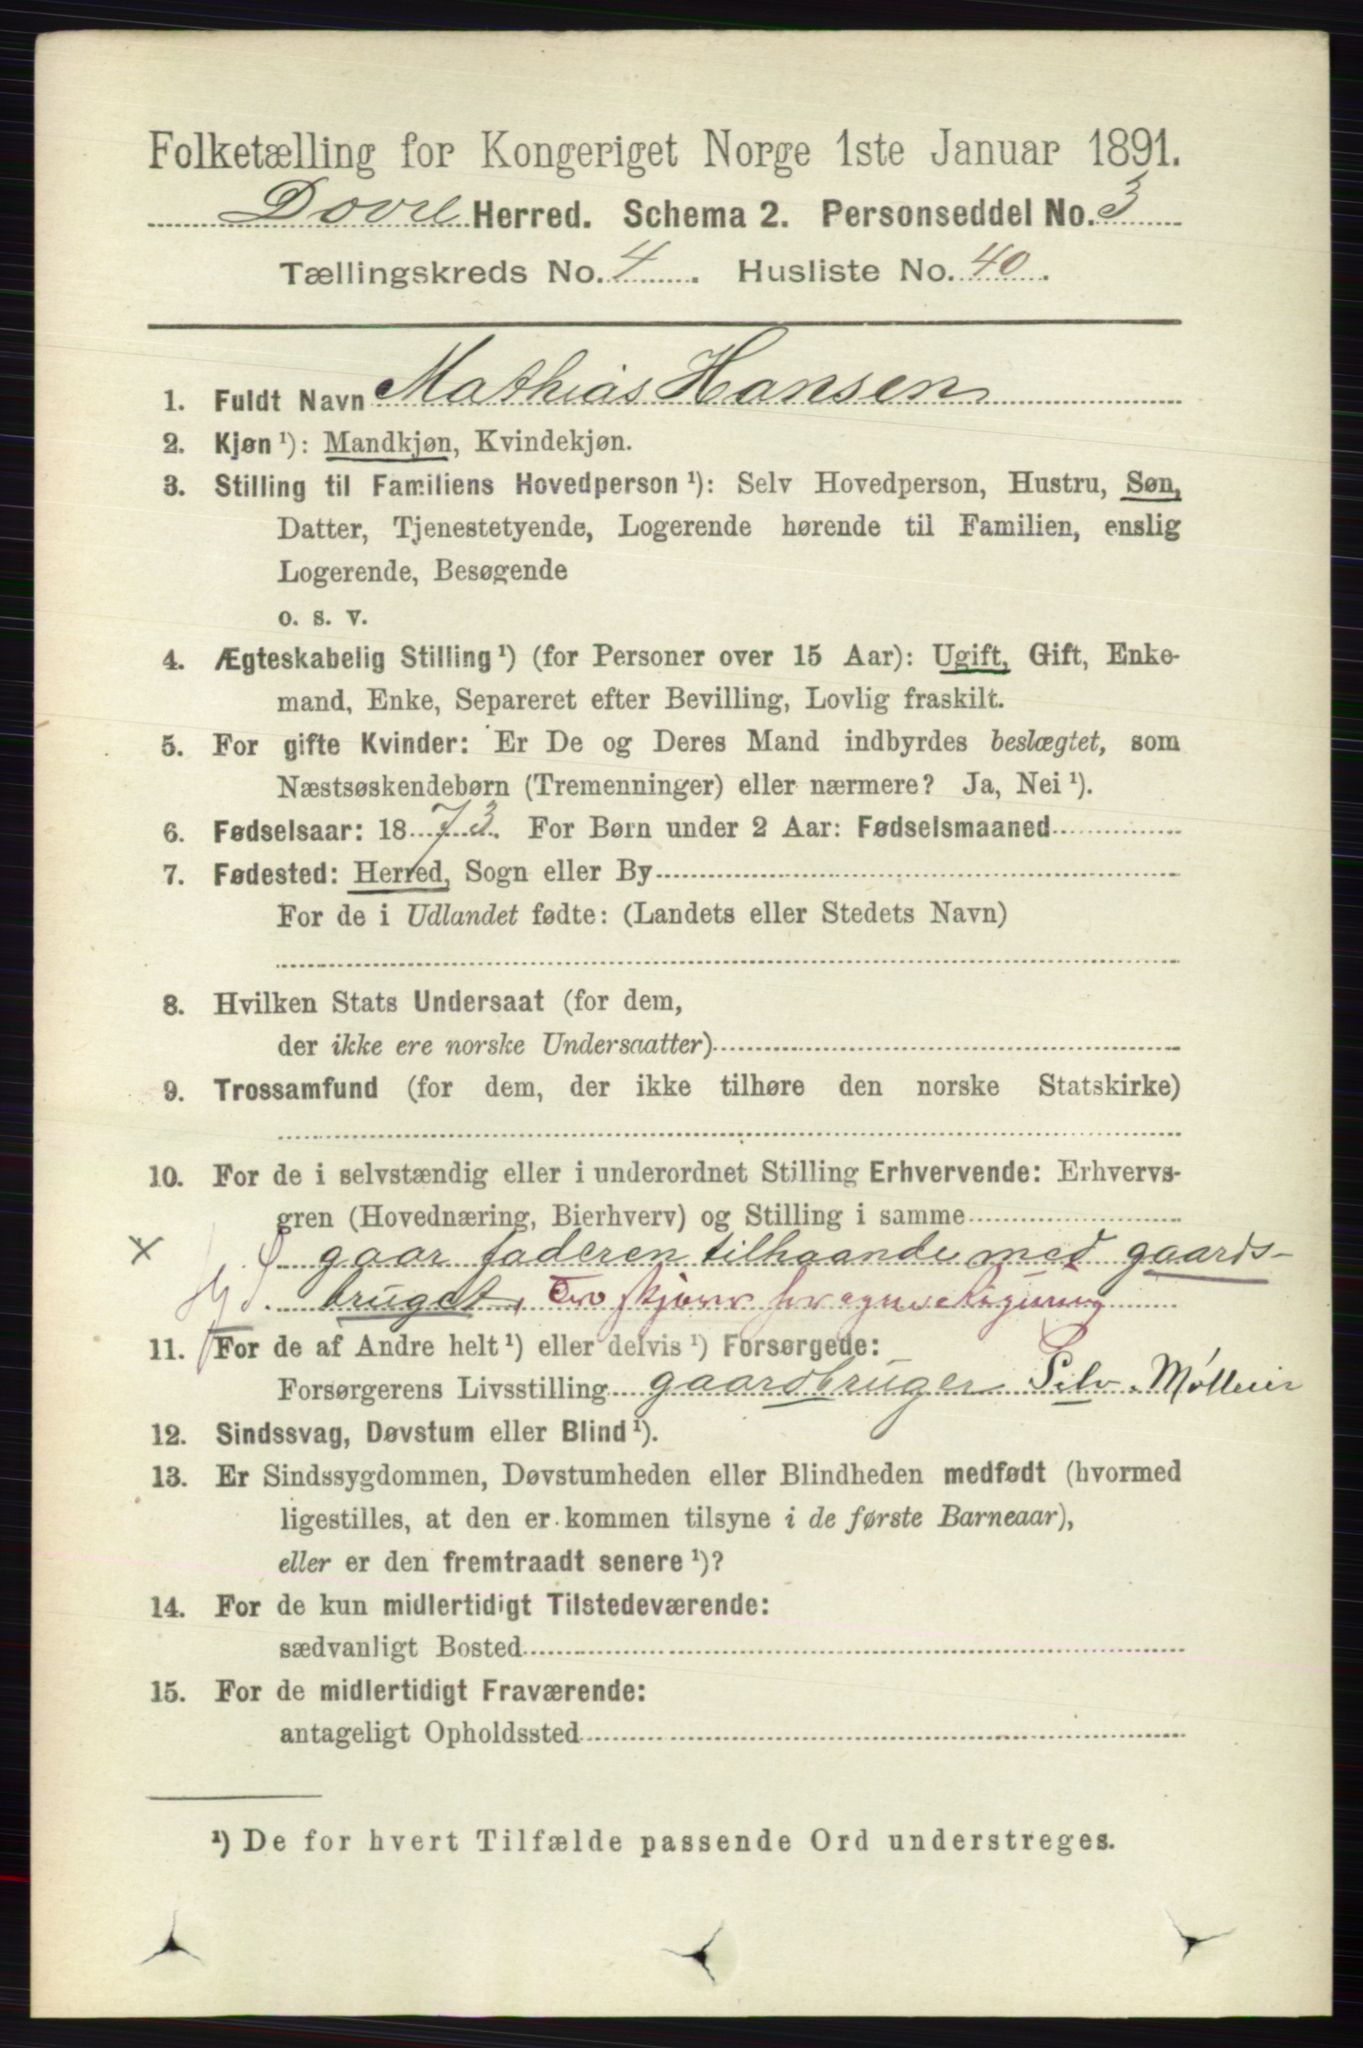 Folketælling for Kongeriget Norge 1ste Januar 1891.
Dovre Herred. Schema 2. Personseddel No. 3
Tællingskreds No. 4. Husliste No. 40.
1. Fuldt Navn Mathias Hansen
2. Kjøn ¹): Mandkjøn, Kvindekjøn.
3. Stilling til Familiens Hovedperson ¹): Selv Hovedperson, Hustru, Søn,
Datter, Tjenestetyende, Logerende hørende til Familien, enslig
Logerende, Besøgende
o. s. v.
4. Ægteskabelig Stilling ¹) (for Personer over 15 Aar): Ugift, Gift, Enke-
mand, Enke, Separeret efter Bevilling, Lovlig fraskilt.
5. For gifte Kvinder: Er De og Deres Mand indbyrdes beslægtet, som
Næstsøskendebørn (Tremenninger) eller nærmere? Ja, Nei ¹).
6. Fødselsaar: 1873. For Børn under 2 Aar: Fødselsmaaned
7. Fødested: Herred, Sogn eller By
For de i Udlandet fødte: (Landets eller Stedets Navn)
8. Hvilken Stats Undersaat (for dem,
der ikke ere norske Undersaatter)
9. Trossamfund (for dem, der ikke tilhøre den norske Statskirke)
10. For de i selvstændig eller i underordnet Stilling Erhvervende: Erhvervs-
gren (Hovednæring, Bierhverv) og Stilling i samme
x gaar faderen tilhaande med gaards-
bruget, for egen Regning
11. For de af Andre helt ¹) eller delvis ¹) Forsørgede:
Forsørgerens Livsstilling gaardbruger Selv.
12. Sindssvag, Døvstum eller Blind ¹).
13. Er Sindssygdommen, Døvstumheden eller Blindheden medfødt (hvormed
ligestilles, at den er kommen tilsyne i de første Barneaar),
eller er den fremtraadt senere ¹)?
14. For de kun midlertidigt Tilstedeværende:
sædvanligt Bosted
15. For de midlertidigt Fraværende:
antageligt Opholdssted
¹) De for hvert Tilfælde passende Ord understreges.